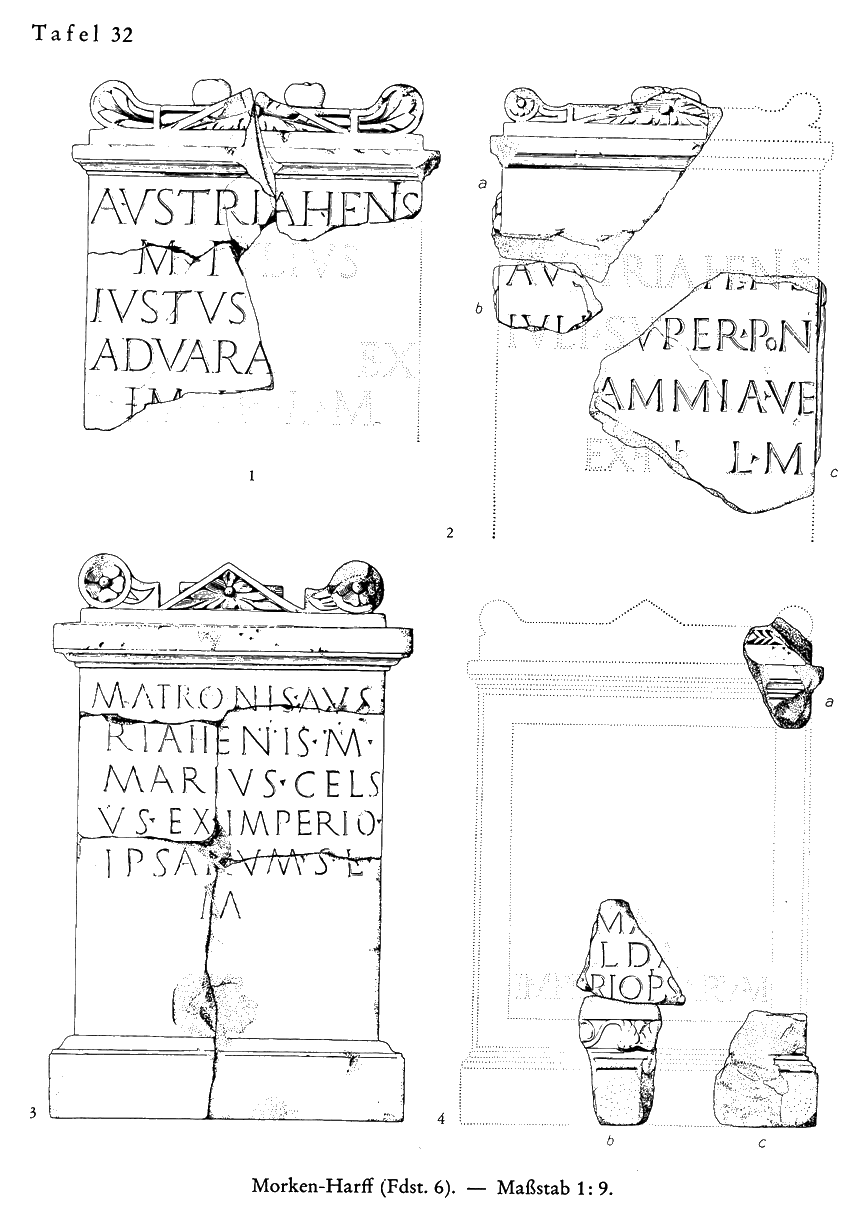 Tafel 32
AVSTRIAHENS
M·IVLIVS
IVSTVS
ADVARA EX
IM L·M
1
a
AVSTRIAHENS
b
IVLI·SVPER·PoN
AMMIA·VE
EX L·M
c
2
MATRONIS·AVS
RIAHENIS·M·
MAR IVS·CELS
VS·EX IMPERIO·
IPSARVM·S·L·
M
3
a
MA
LDA
IMPERIOIPSARVM
4
b
c
Morken-Harff (Fdst. 6). — Maßstab 1: 9.